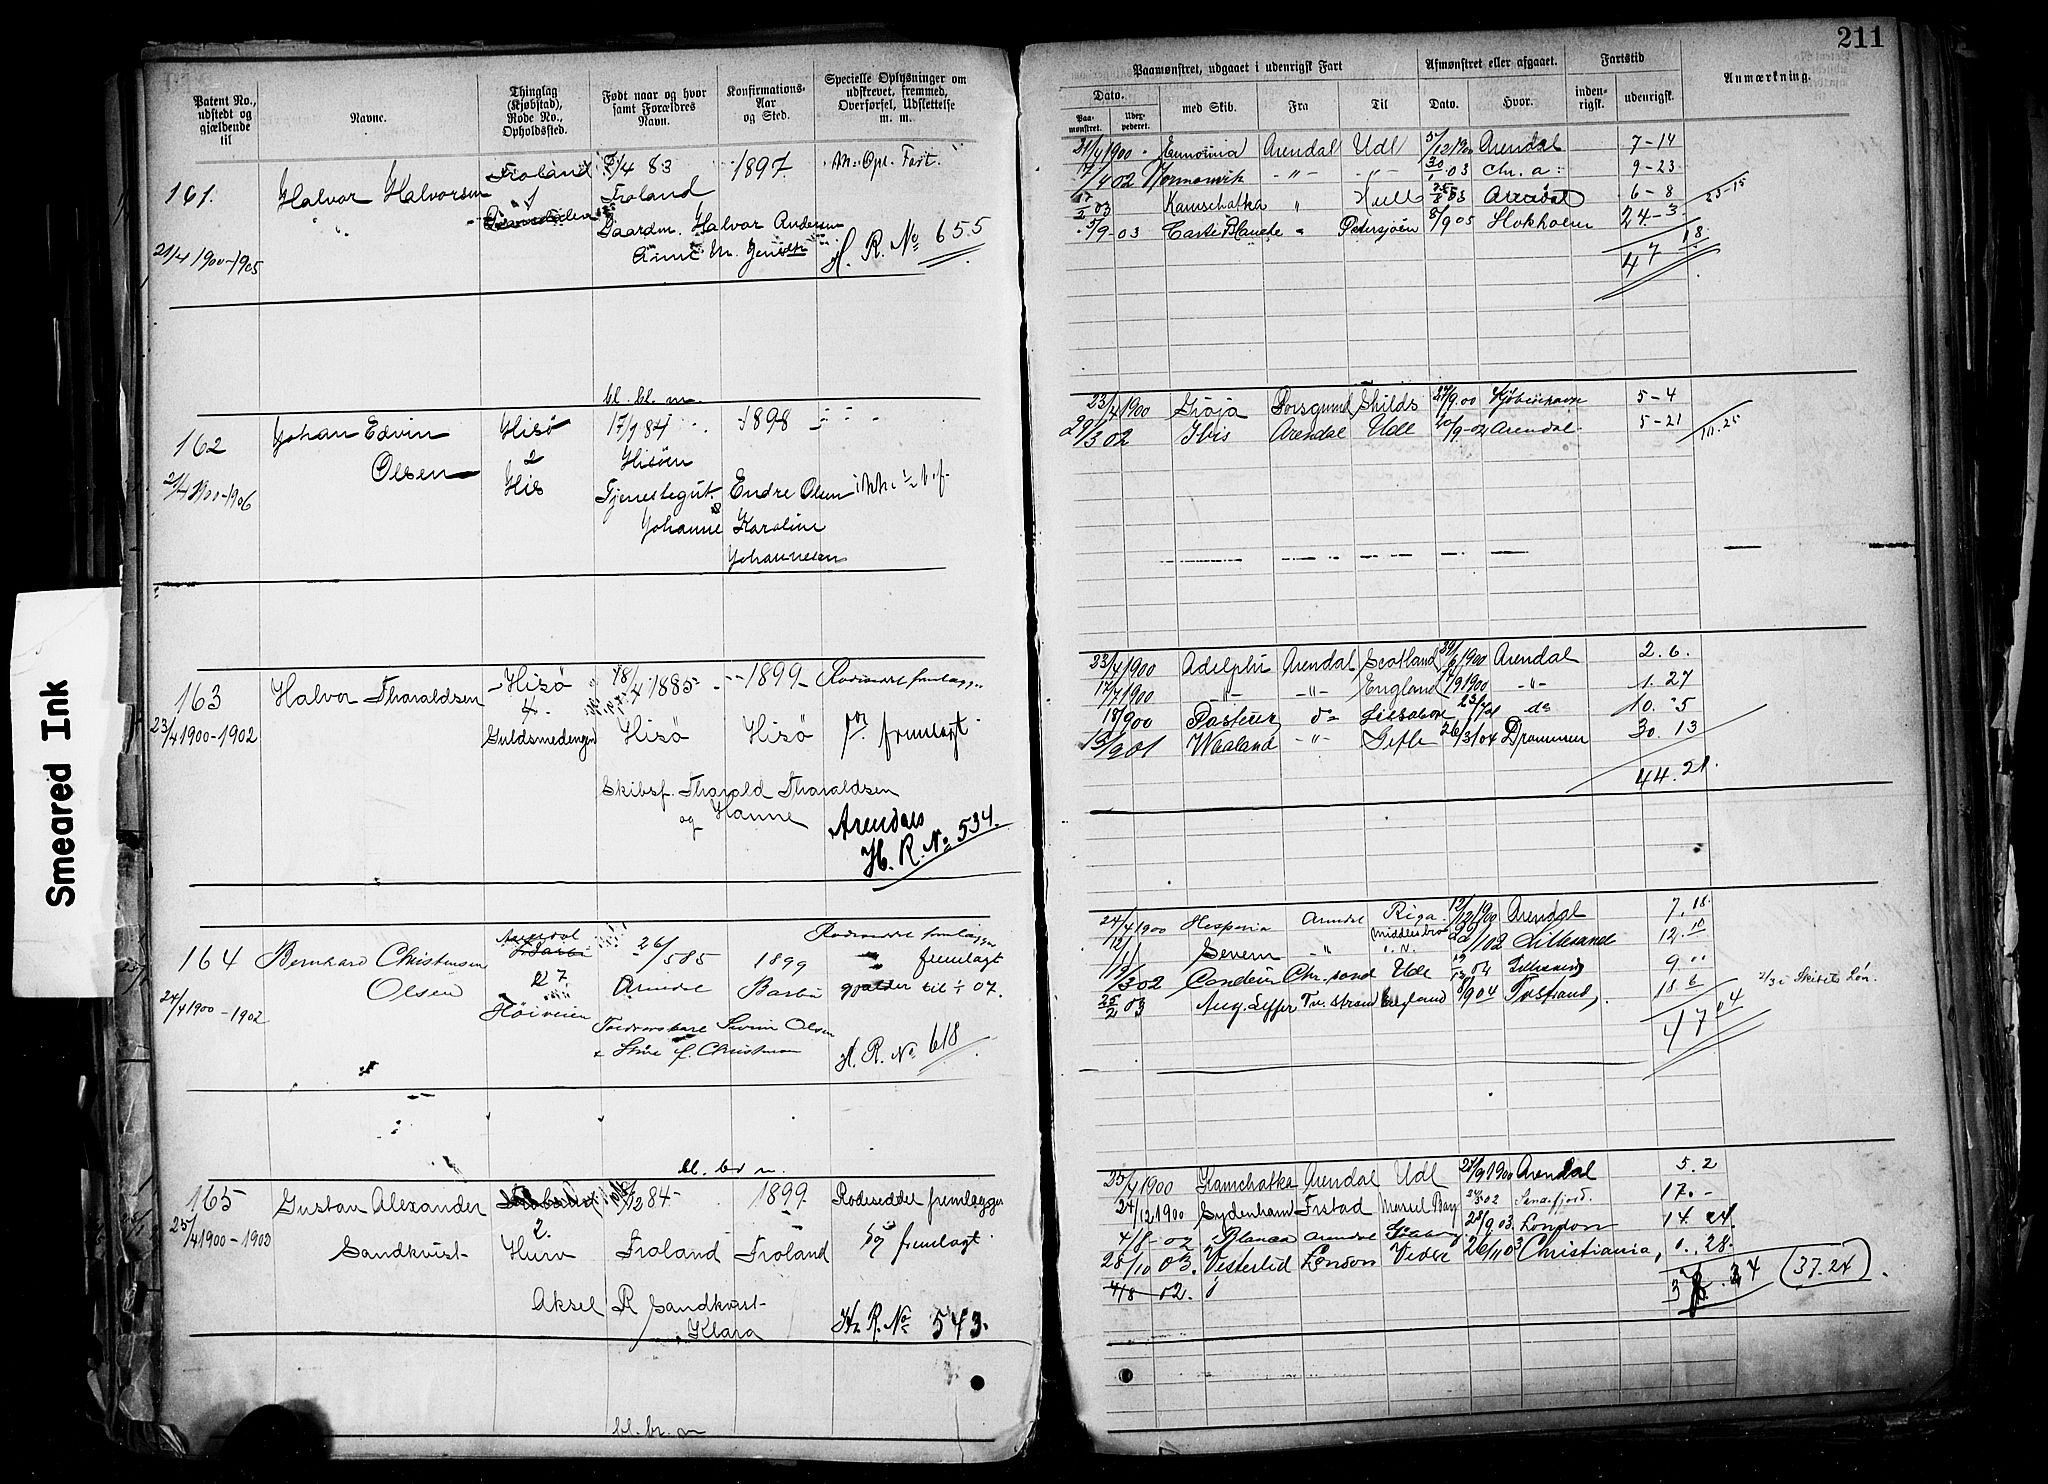 211
Patent No., udstedt og gjældende til
Navne.
Thinglag (Kjøbstad), Rode No., Opholdssted.
Født naar og hvor samt Forældres Navn.
Konfirmations-Aar og Sted.
Specielle Oplysninger om udskrevet, fremmed, Overførsel, Udslettelse m. m.
Paamønstret, udgaaet i udenrigsk Fart
Afmønstret eller afgaaet.
Fartstid
Anmærkning.
Dato.
Paamønstret.
Udexpederet.
med Skib.
Fra
Til
Dato.
Hvor.
indenrigsk.
udenrigsk.
161.
21/4 1900-1905
Halvor Halvorsen
Froland
1
/4 83
Froland
Gaardm. Halvor Andersen
1897.
M. Opl. Fart.
H. R. No 655
21/4 1900 Eunomia Arendal Udl /12 1900 Arendal 7-14
17/4 02 Vormansvik -"- -"- 30/1 03 Chr.a: 9-23
17/2 03 Kamschatka " Hull /8 03 Arendal 6-8
5/9-03 Carte Blanche " 8/9 05 Stokholm 24-3
23-15
47 18
bl. bl. m.
162
21/4 1900-1906
Johan Edvin
Olsen
Hisø
2
His
17/9 84
Hisøen
Tjenestegut. Endre Olsen
Johanne Karoline
Johannesen
1898
23/4 1900 Grøja Porsgrund Shilds 27/9.00 Kjøbenhavn 5-4
29/3 02 Ibis Arendal Udl 20/9-02 Arendal 5-21
10.25
163
23/4 1900-1902
Halvor Tharaldsen
Hisø
4.
Guldsmedengen
18/4 1885
Hisø
1899
Hisø
Rodeseddel fremlægges
fremlagt
Skibsf. Tharald Tharaldsen
og Hanne
Arendals
H. R. No 534.
23/4 1900 Adelphi Arendal Scotland 29/6 1900 Arendal 2.6.
17/7 1900 -"- -"- England 1/9 1900 -"- 1.27
18/9 00 Pasteur do do 10.5
13/9 01 Waaland -"- Gefle 26/3 04 Drammen 30.13
44.21.
164
24/4 1900-1902
Bernhard Christensen
Olsen
Arendal
Barbu
27.
Høiveien
26/5 85
Arendal
1899
Barbu
Rodeseddel fremlægges
fremlagt
til 1/1 07.
Severin Olsen
Christensen
H. R. No 618
24/4 1900 Hesperia Arendal Riga 12/12 1900 Arendal 7.18
12/1 1 Severn " Middlesbro 29/1 02 Lillesand 12.10
19/3 02 Condeir Chr.sand Udl 04 Lillesand 9 "
25/2 03 Aug. Leffler Tv.strand England 8/9 04 Tvestrand, 18.6
2/3 i Skibets Løn.
47 04
bl. bl. m.
165
25/4 1900-1903
Gustav Alexander
Sandkvist
2.
Hurv
/12 84
Froland
1899
Froland
Rodeseddel fremlægges
fremlagt
Aksel R Sandkvist
Klara
H. R. No 543.
25/4 1900 Kamschatka Arendal Udl 27/9 1900 Arendal 5.2
24/12 1900 Sydenham Frstad Mossel Bay 27/5 02 Sandefjord. 17.-
4/8-02 Blanca Arendal 28/9 03. London 14.24.
28/10 03. Vestertid London 26/11 03 Christiania, 0.28.
4/8 02.
24 (37.24)
bl. br. m
Smeared Ink